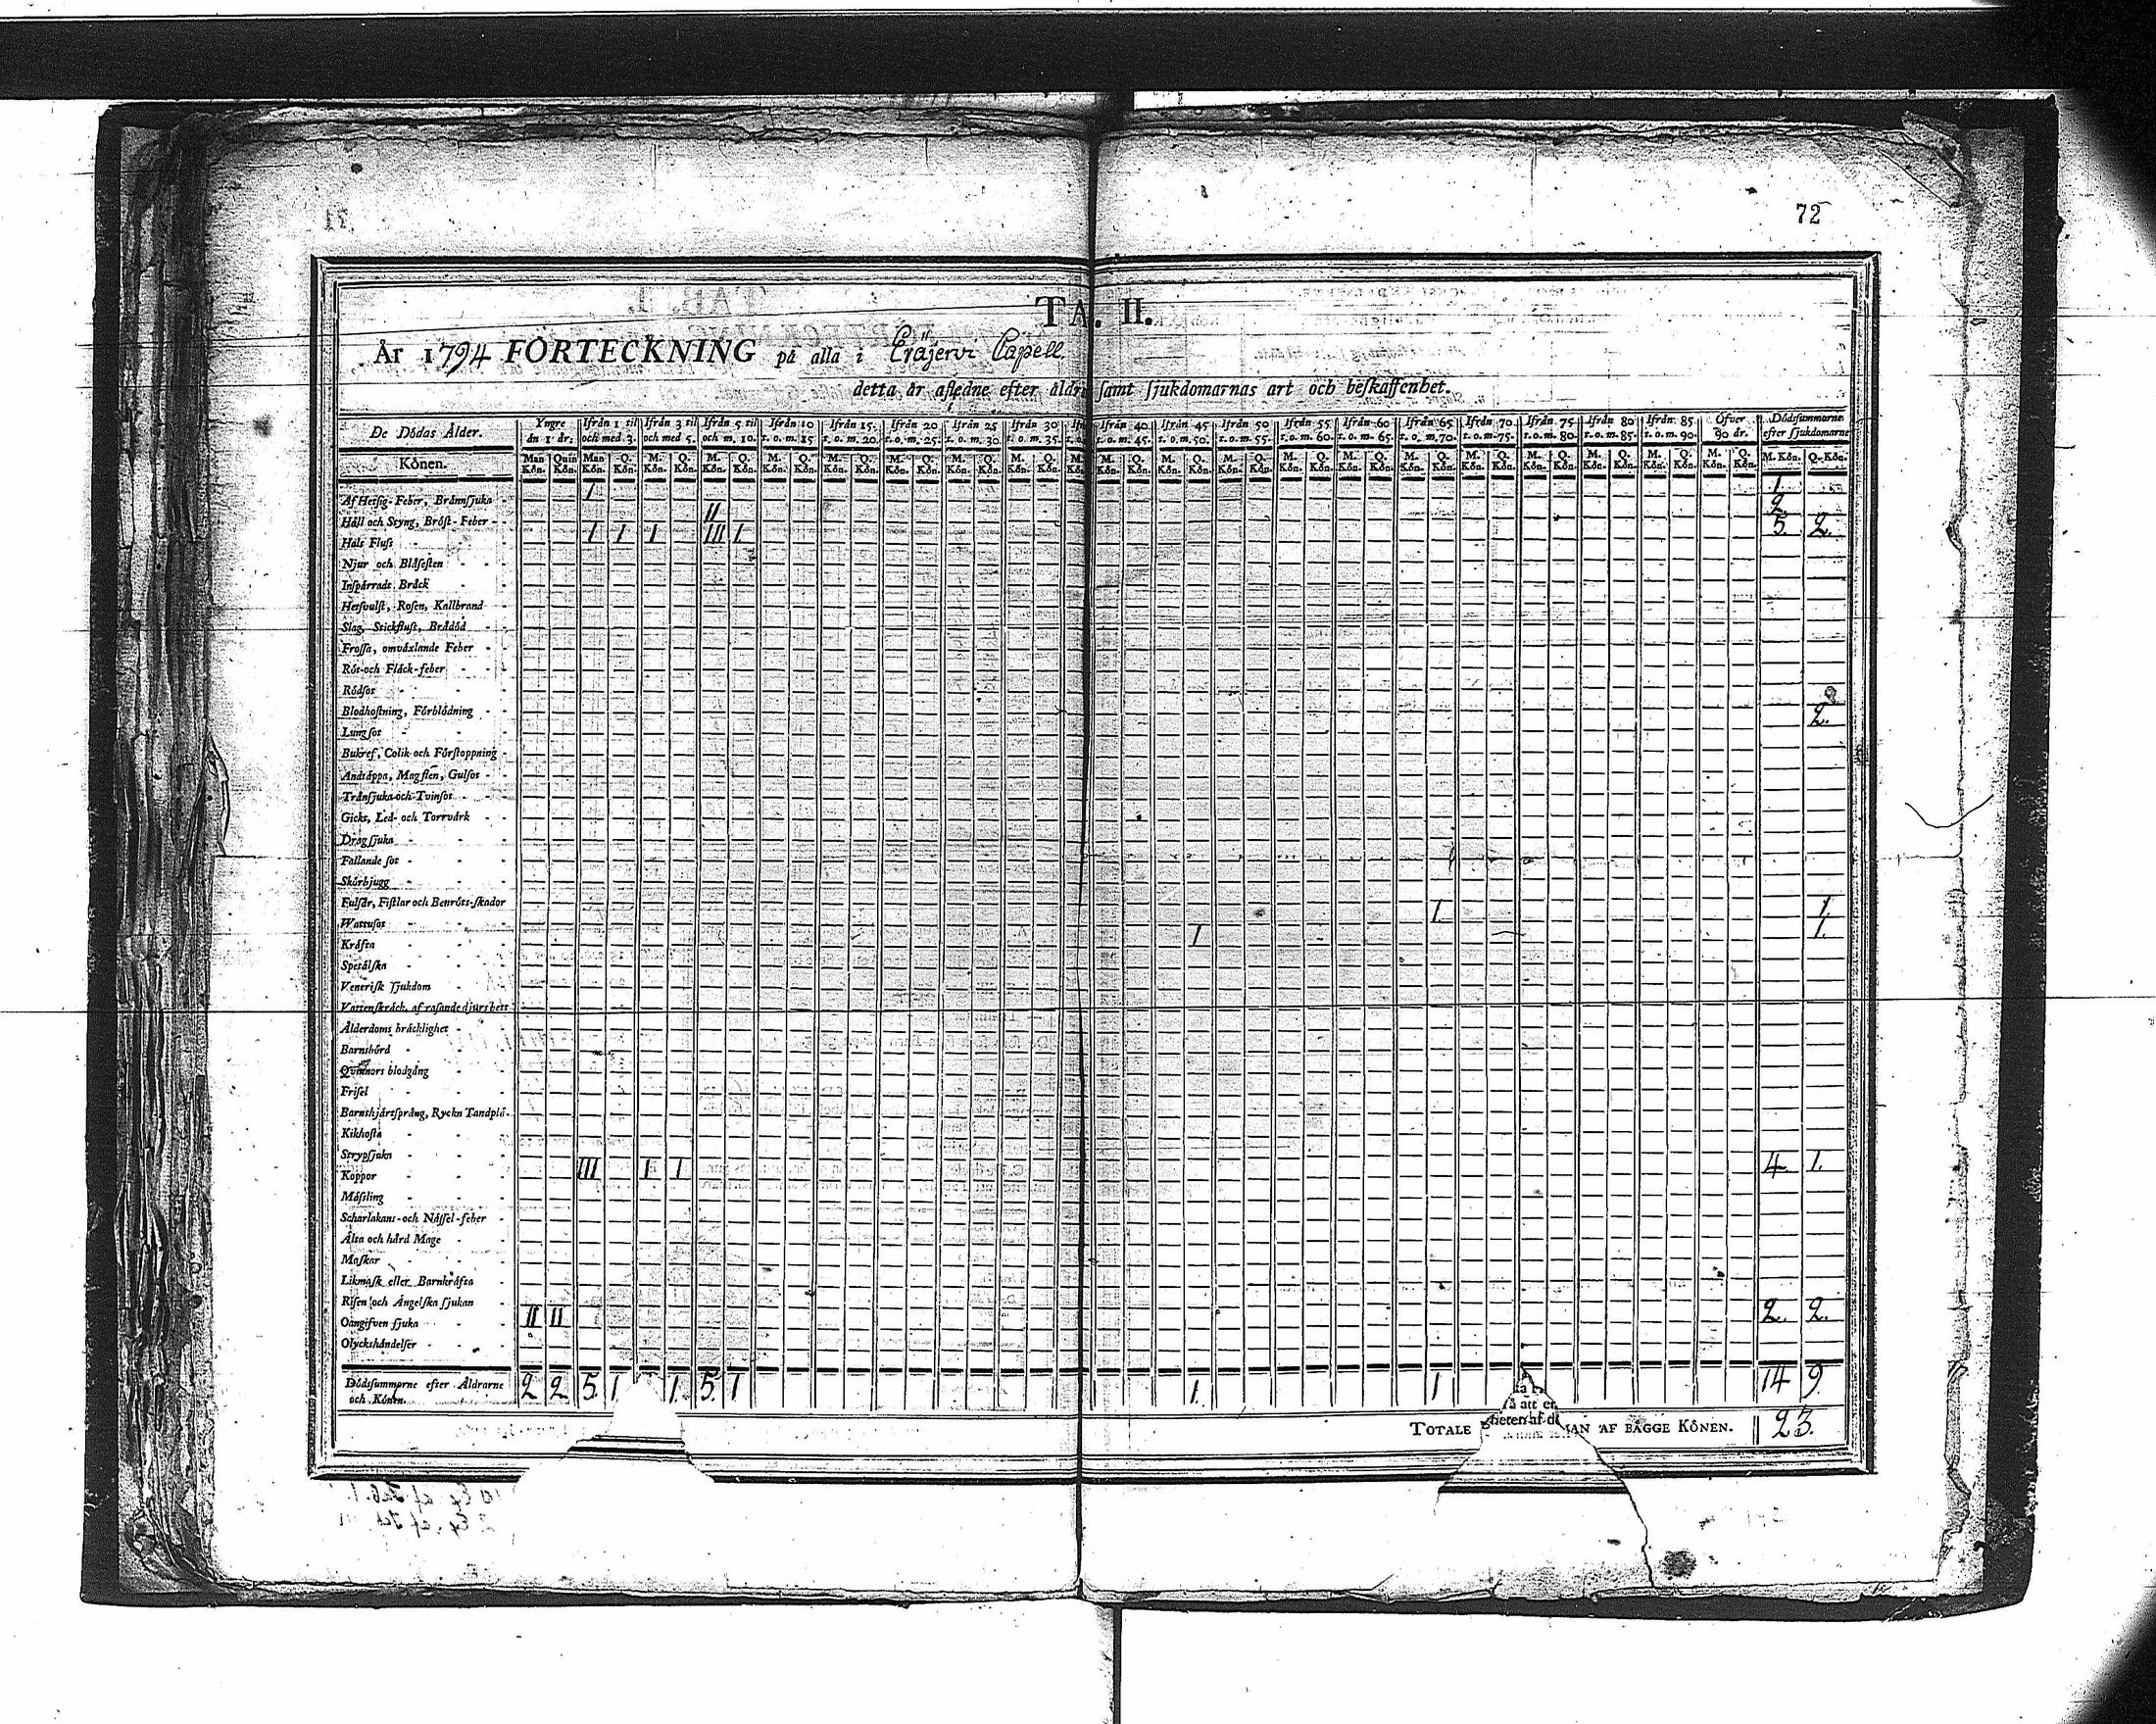 72
TA. II.
År 1794 FÖRTECKNING på alla i Eräjervi Capell
detta år afledne efter ålder samt sjukdomarnas art och beskaffenhet.
De Dödas Ålder. Yngre än 1 år. Ifrån 1 til och med 3. Ifrån 3 til och med 5. Ifrån 5 til och m. 10. Ifrån 10 t. o. m. 15. Ifrån 15 t. o. m. 20. Ifrån 20 t. o. m. 25. Ifrån 25 t. o. m. 30. Ifrån 30 t. o. m. 35. Ifrån 40 t. o. m. 45. Ifrån 45 t. o. m. 50. Ifrån 50 t. o. m. 55. Ifrån 55 t. o. m. 60. Ifrån 60 t. o. m. 65. Ifrån 65 t. o. m. 70. Ifrån 70 t. o. m. 75. Ifrån 75 t. o. m. 80. Ifrån 80 t. o. m. 85. Ifrån 85 t. o. m. 90. Öfver 90 år. Dödssummorne efter sjukdomarne
Könen. Man Kön. Quin Kön. Man Kön. Q. Kön. M. Kön. Q. Kön. M. Kön. Q. Kön. M. Kön. Q. Kön. M. Kön. Q. Kön. M. Kön. Q. Kön. M. Kön. Q. Kön. M. Kön. Q. Kön. M. Kön. M. Kön. Q. Kön. M. Kön. Q. Kön. M. Kön. Q. Kön. M. Kön. Q. Kön. M. Kön. Q. Kön. M. Kön. Q. Kön. M. Kön. Q. Kön. M. Kön. Q. Kön. M. Kön. Q. Kön. M. Kön. Q. Kön. M. Kön. Q. Kön. M. Kön. Q. Kön.
Af Hetsig-Feber, Brännsjuka I 1.
Håll och Styng, Bröst-Feber II 2.
Hals Fluss I I I III I. 5. 2.
Njur och Blåsesten
Inspärrade Bråck
Hetsvulst, Rosen, Kallbrand
Slag, Stickfluss, Brådöd
Frossa, omväxlande Feber
Röt-och Fläck-feber
Rödsot
Blodhostning, Förblödning 2.
Lungsot
Bukref, Colik och Förstoppning
Andtäppa, Magsten, Gulsot
Trånsjuka och Tvinsot
Gickt, Led- och Torrvärk
Dragsjuka
Fallande sot
Skörbjugg
Fulsår, Fistlar och Benröts-skador 1.
Wattusot 1. 1.
Kräfta 1
Spetälska
Venerisk Sjukdom
Vattenskräck, af rasande djurs bett
Ålderdoms bräcklighet
Barnsbörd
Qvinnors blodgång
Frisel
Barnshjärtsprång, Ryckn Tandplå-
Kikhosta
Strypsjuka
Koppor III I I 4 1.
Mässling
Scharlakans-och Nässel-feber
Älta och hård Mage
Maskar
Likmask eller Barnkräfta
Risen och Ängelska sjukan
Oangifven sjuka II II 2. 2.
Olyckshändelser
Dödssummorne efter Åldrarne och Könen. 2 2 5. 1 1. 5. 1 1. 1 14 9
TOTALE AF BÄGGE KÖNEN. 23.